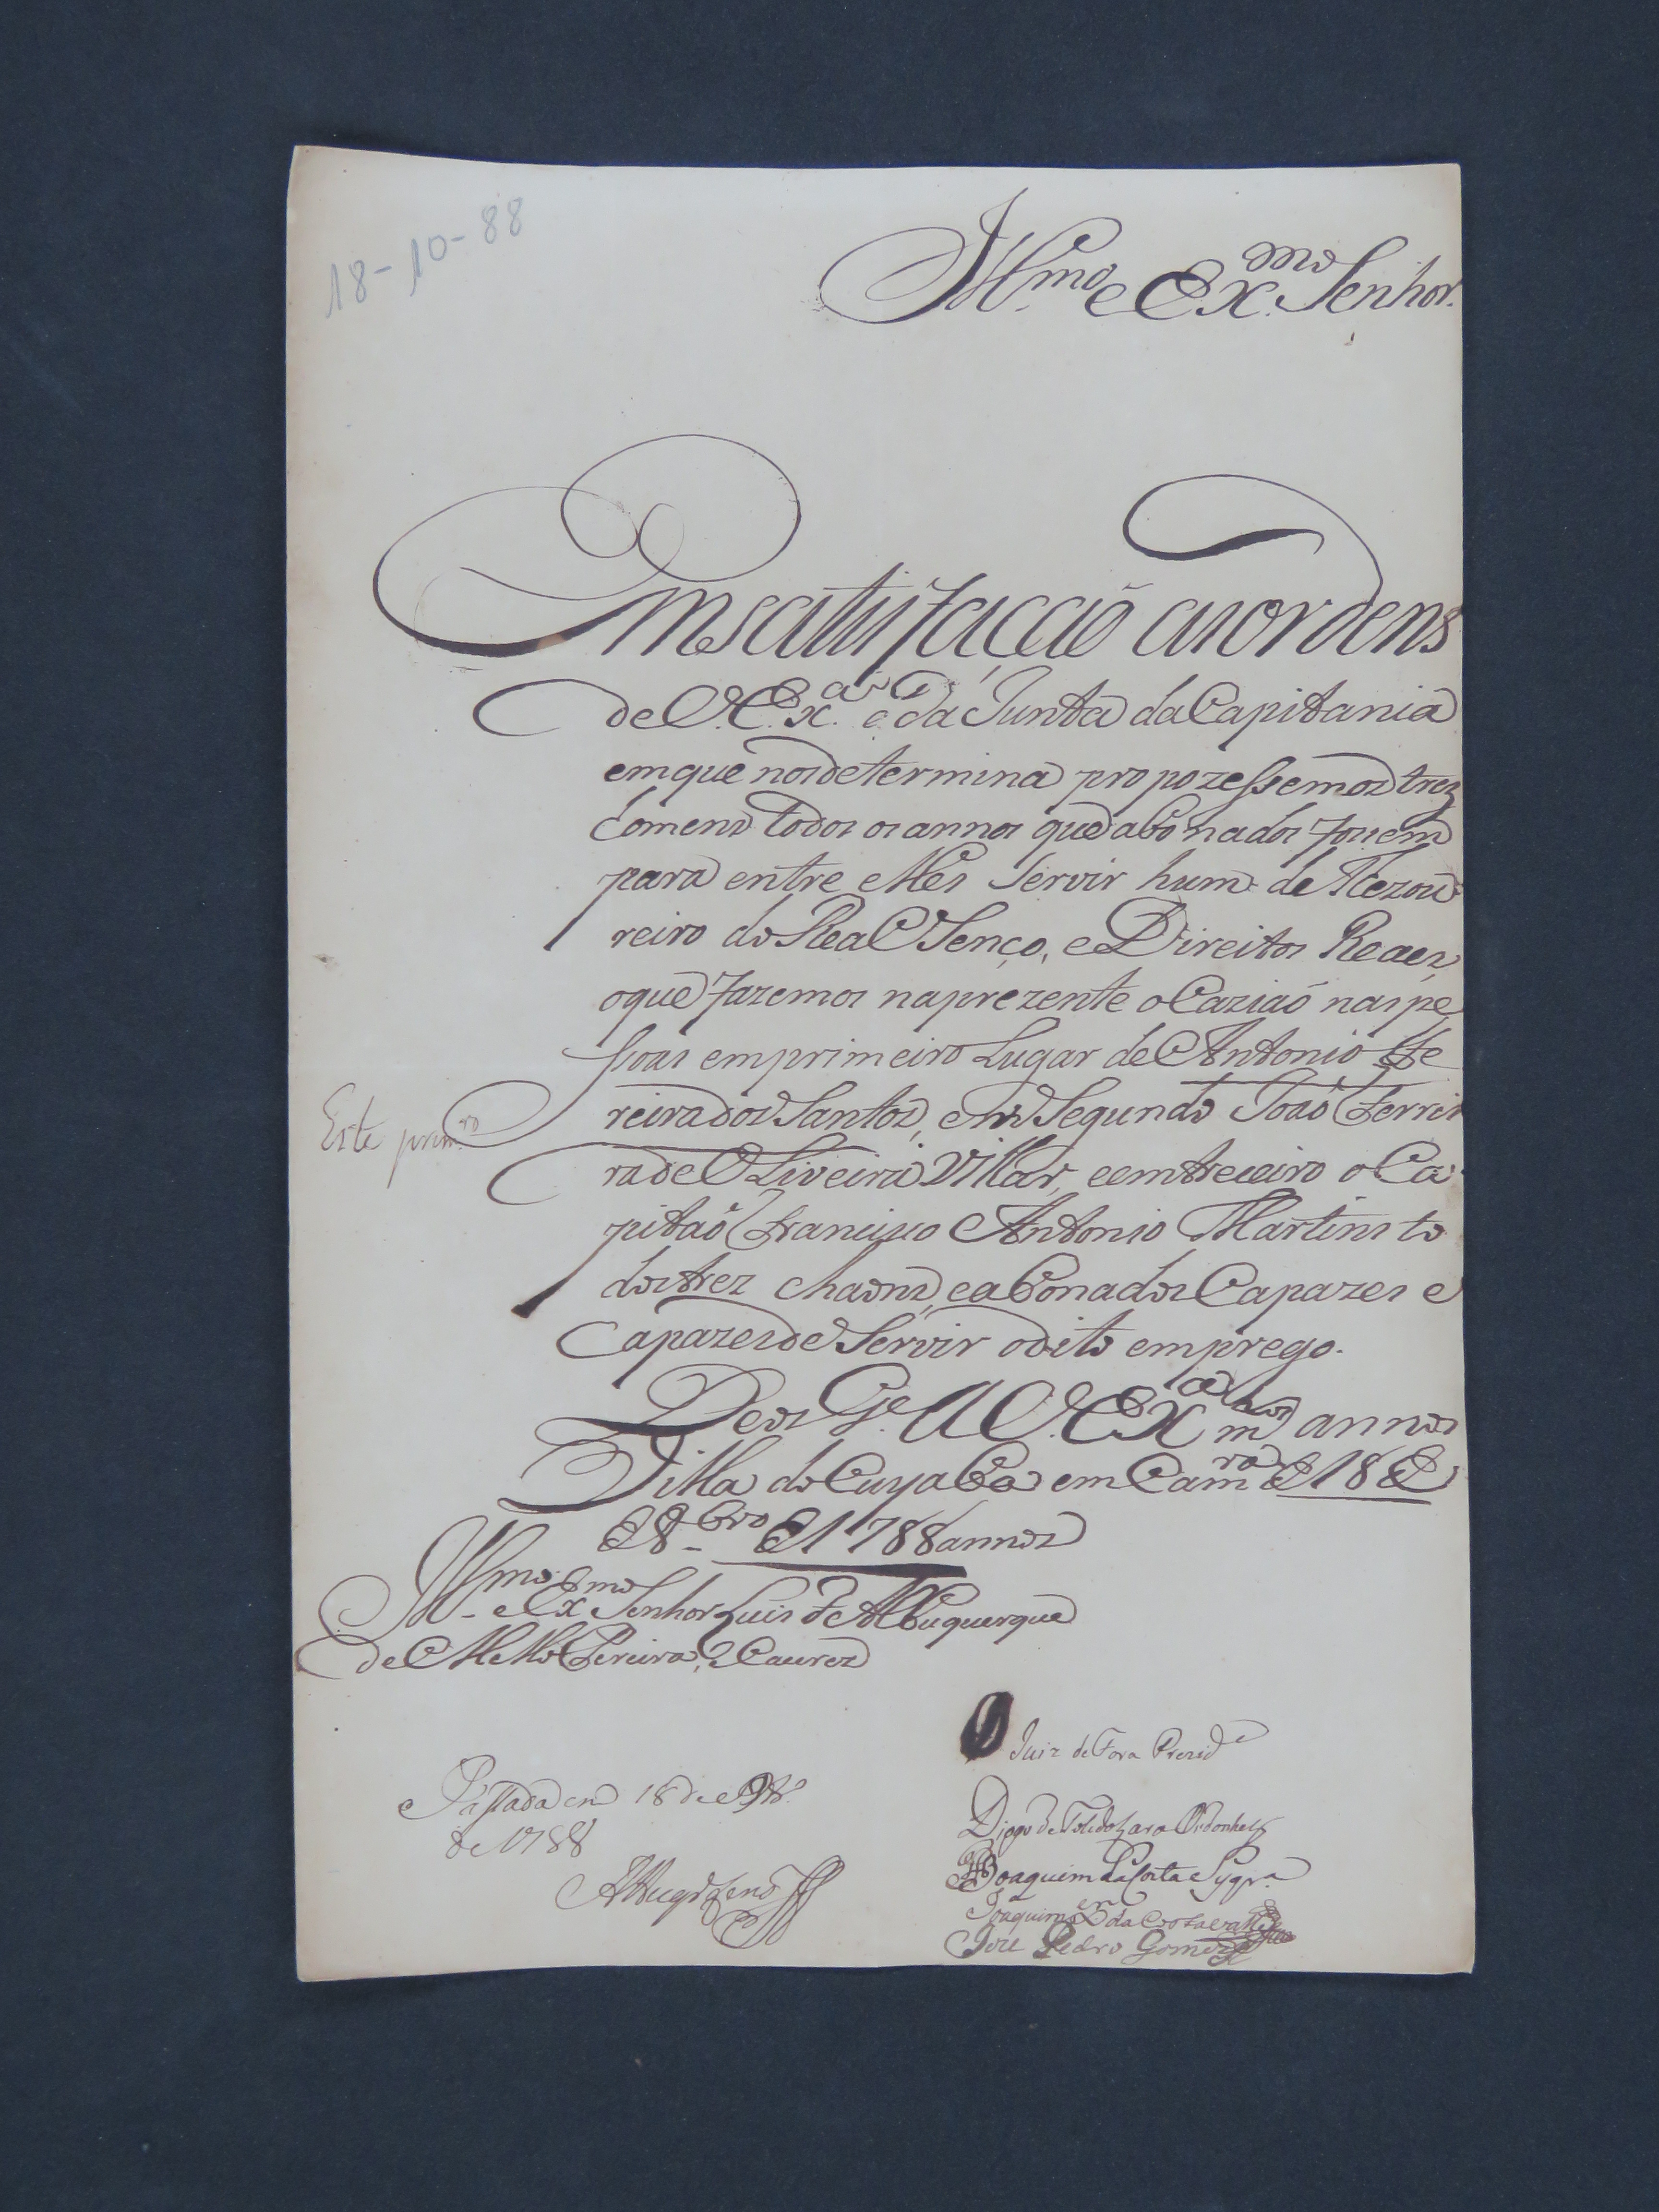 18-10-88
Ill.mo e Ex.mo Senhor.
Em satisfacçaõ as ordens
de V. Ex.a e da Junta da Capitania
em que nos determina propozessemos trez
homens todos os annos que abonados fosem
para entre elles servir hum de Thezou
reiro do Real Senço, e Direitos Reaes,
o que fazemos na prezente ocaziaõ nas pe
ssoas em primeiro Lugar de Antonio Fe
reira dos Santos, em Segundo Joaõ Ferrei
ra de Oliveira Villar, e em treceiro o Ca
pitaõ Francisco Antonio Martins to
dos trez chaons, e abonados Capazes e
Capazes de Servir o dito emprego.
Este prim.ro
Deos G.e a V. Ex.a m.tos annos
Villa do Cuyaba em Cam.ra de 18 de
8.bro de 1788 annos
Ill.mo e Ex.mo Senhor Luis de Albuquerque
de Mello Pereira, e Caceres
O Juiz de Fora Prezid.e
Diogo de Toledo Lara Ordonhez
Joaquim da Costa Syqr.a
Joaquim da Costa
Joze Pedro Gomes
Passada em 18 de
de 1788